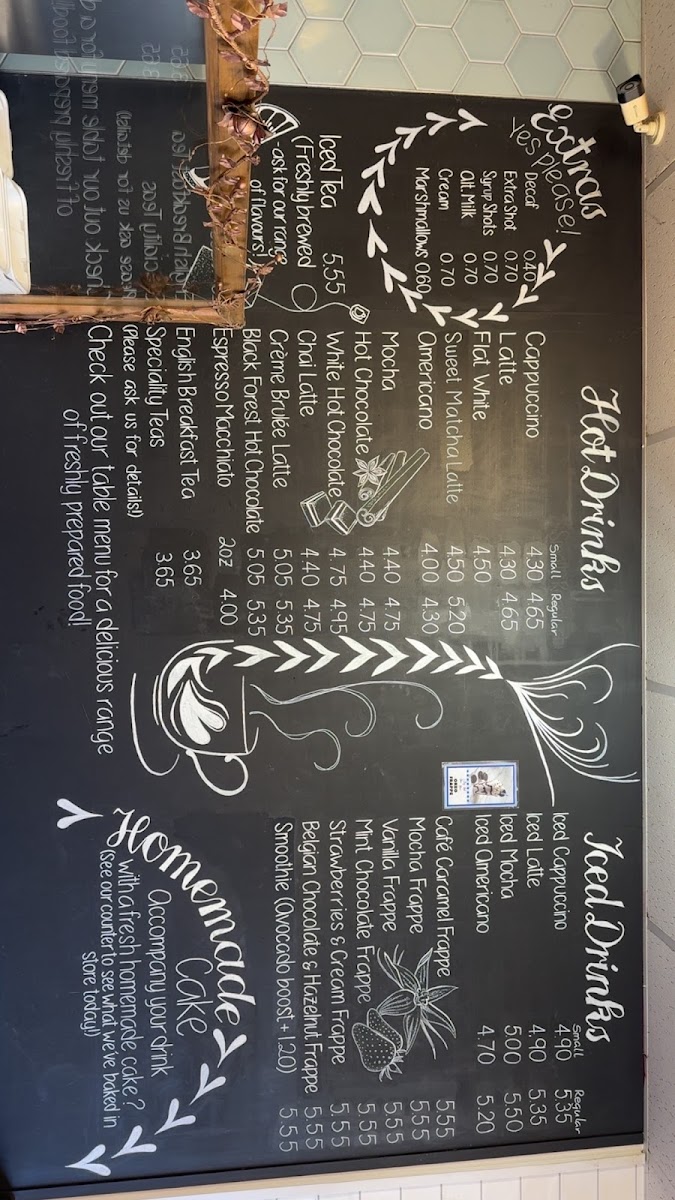 Extras
Yes please!
Decaf 0.40
Extra Shot 0.70
Syrup Shots 0.70
alt. Milk 0.70
Cream 0.70
Marshmallows 0.60
Iced Tea 5.55
(Freshly brewed
-ask for our range
of flavours!)
Hot Drinks
Small Regular
Cappuccino 4.30 4.65
Latte 4.30 4.65
Flat White 4.50
Sweet Matcha Latte 4.50 5.20
Americano 4.00 4.30
Mocha 4.40 4.75
Hot Chocolate 4.40 4.75
White Hot Chocolate 4.75 4.95
Chai Latte 4.40 4.75
Crème Brulée Latte 5.05 5.35
Black Forest Hot Chocolate 5.05 5.35
Espresso Macchiato 2oz 4.00
English Breakfast Tea 3.65
Speciality Teas 3.65
(Please ask us for details!)
Check out our table menu for a delicious range
of freshly prepared food!
Iced Drinks
Small Regular
Iced Cappuccino 4.90 5.35
Iced Latte 4.90 5.35
Iced Mocha 5.00 5.50
Iced Americano 4.70 5.20
Café Caramel Frappe 5.55
Mocha Frappe 5.55
Vanilla Frappe 5.55
Mint Chocolate Frappe 5.55
Strawberries & Cream Frappe 5.55
Belgian Chocolate & Hazelnut Frappe 5.55
Smoothie (Avocado boost + 1.20) 5.55
Homemade
Cake
Accompany your drink
with a fresh homemade cake?
(see our counter to see what we've baked in
store today!)